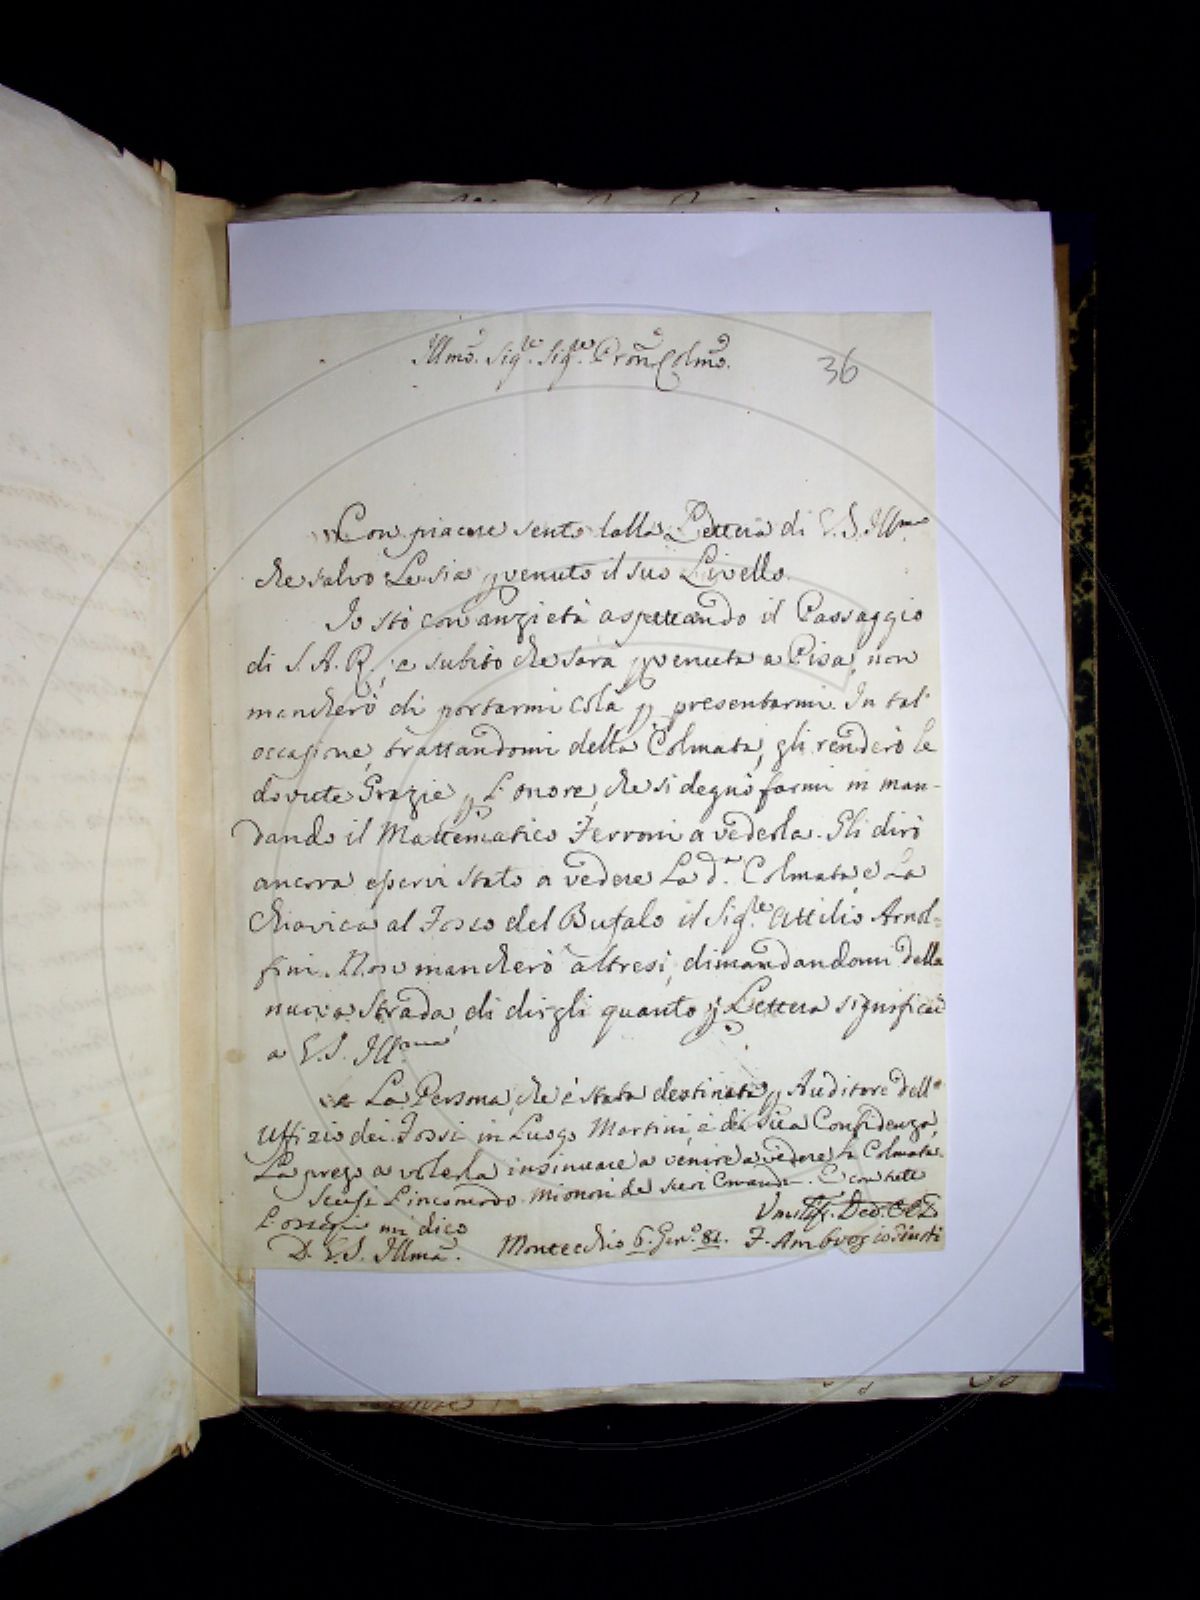 Illmo. Sigre. Sigre. Pron. Colmo.
36
Con piacere sento dalla Lettera di V. S. Illma.
che salvo Le sia pervenuto il suo Livello.
Io stò con anzietà aspettando il Passaggio
di S. A. R., e subito che sarà pervenuta a Pisa, non
mancherò di portarmi colà per presentarmi. In tal'
occasione, trattandomi della Colmata, gli renderò le
dovute Grazie per L'onore, che si degnò farmi in man-
dando il Mattematico Ferroni a vederla. Gli dirò
ancora esservi stato a vedere La da. Colmata, e La
Chiavica al Fosso del Bufalo il Sigre. Attilio Arnol=
fini. Non mancherò altresì, dimandandomi della
nuova Strada, di dirgli quanto per Lettera significai
a V. S. Illma.
La Persona, che è stata destinata per Auditore dell'
Uffizio dei Fossi in Luogo Martini, è di Sua Confidenza,
La prego a volerla insinuare a venire a vedere la Colmata.
Scusi L'incomodo. Mi onori de suoi Comandi. E con tutto
L'ossequio mi dico
D. V. S. Illma.
Montecchio 6. Gen. 82.
F. Ambrogio Giusti